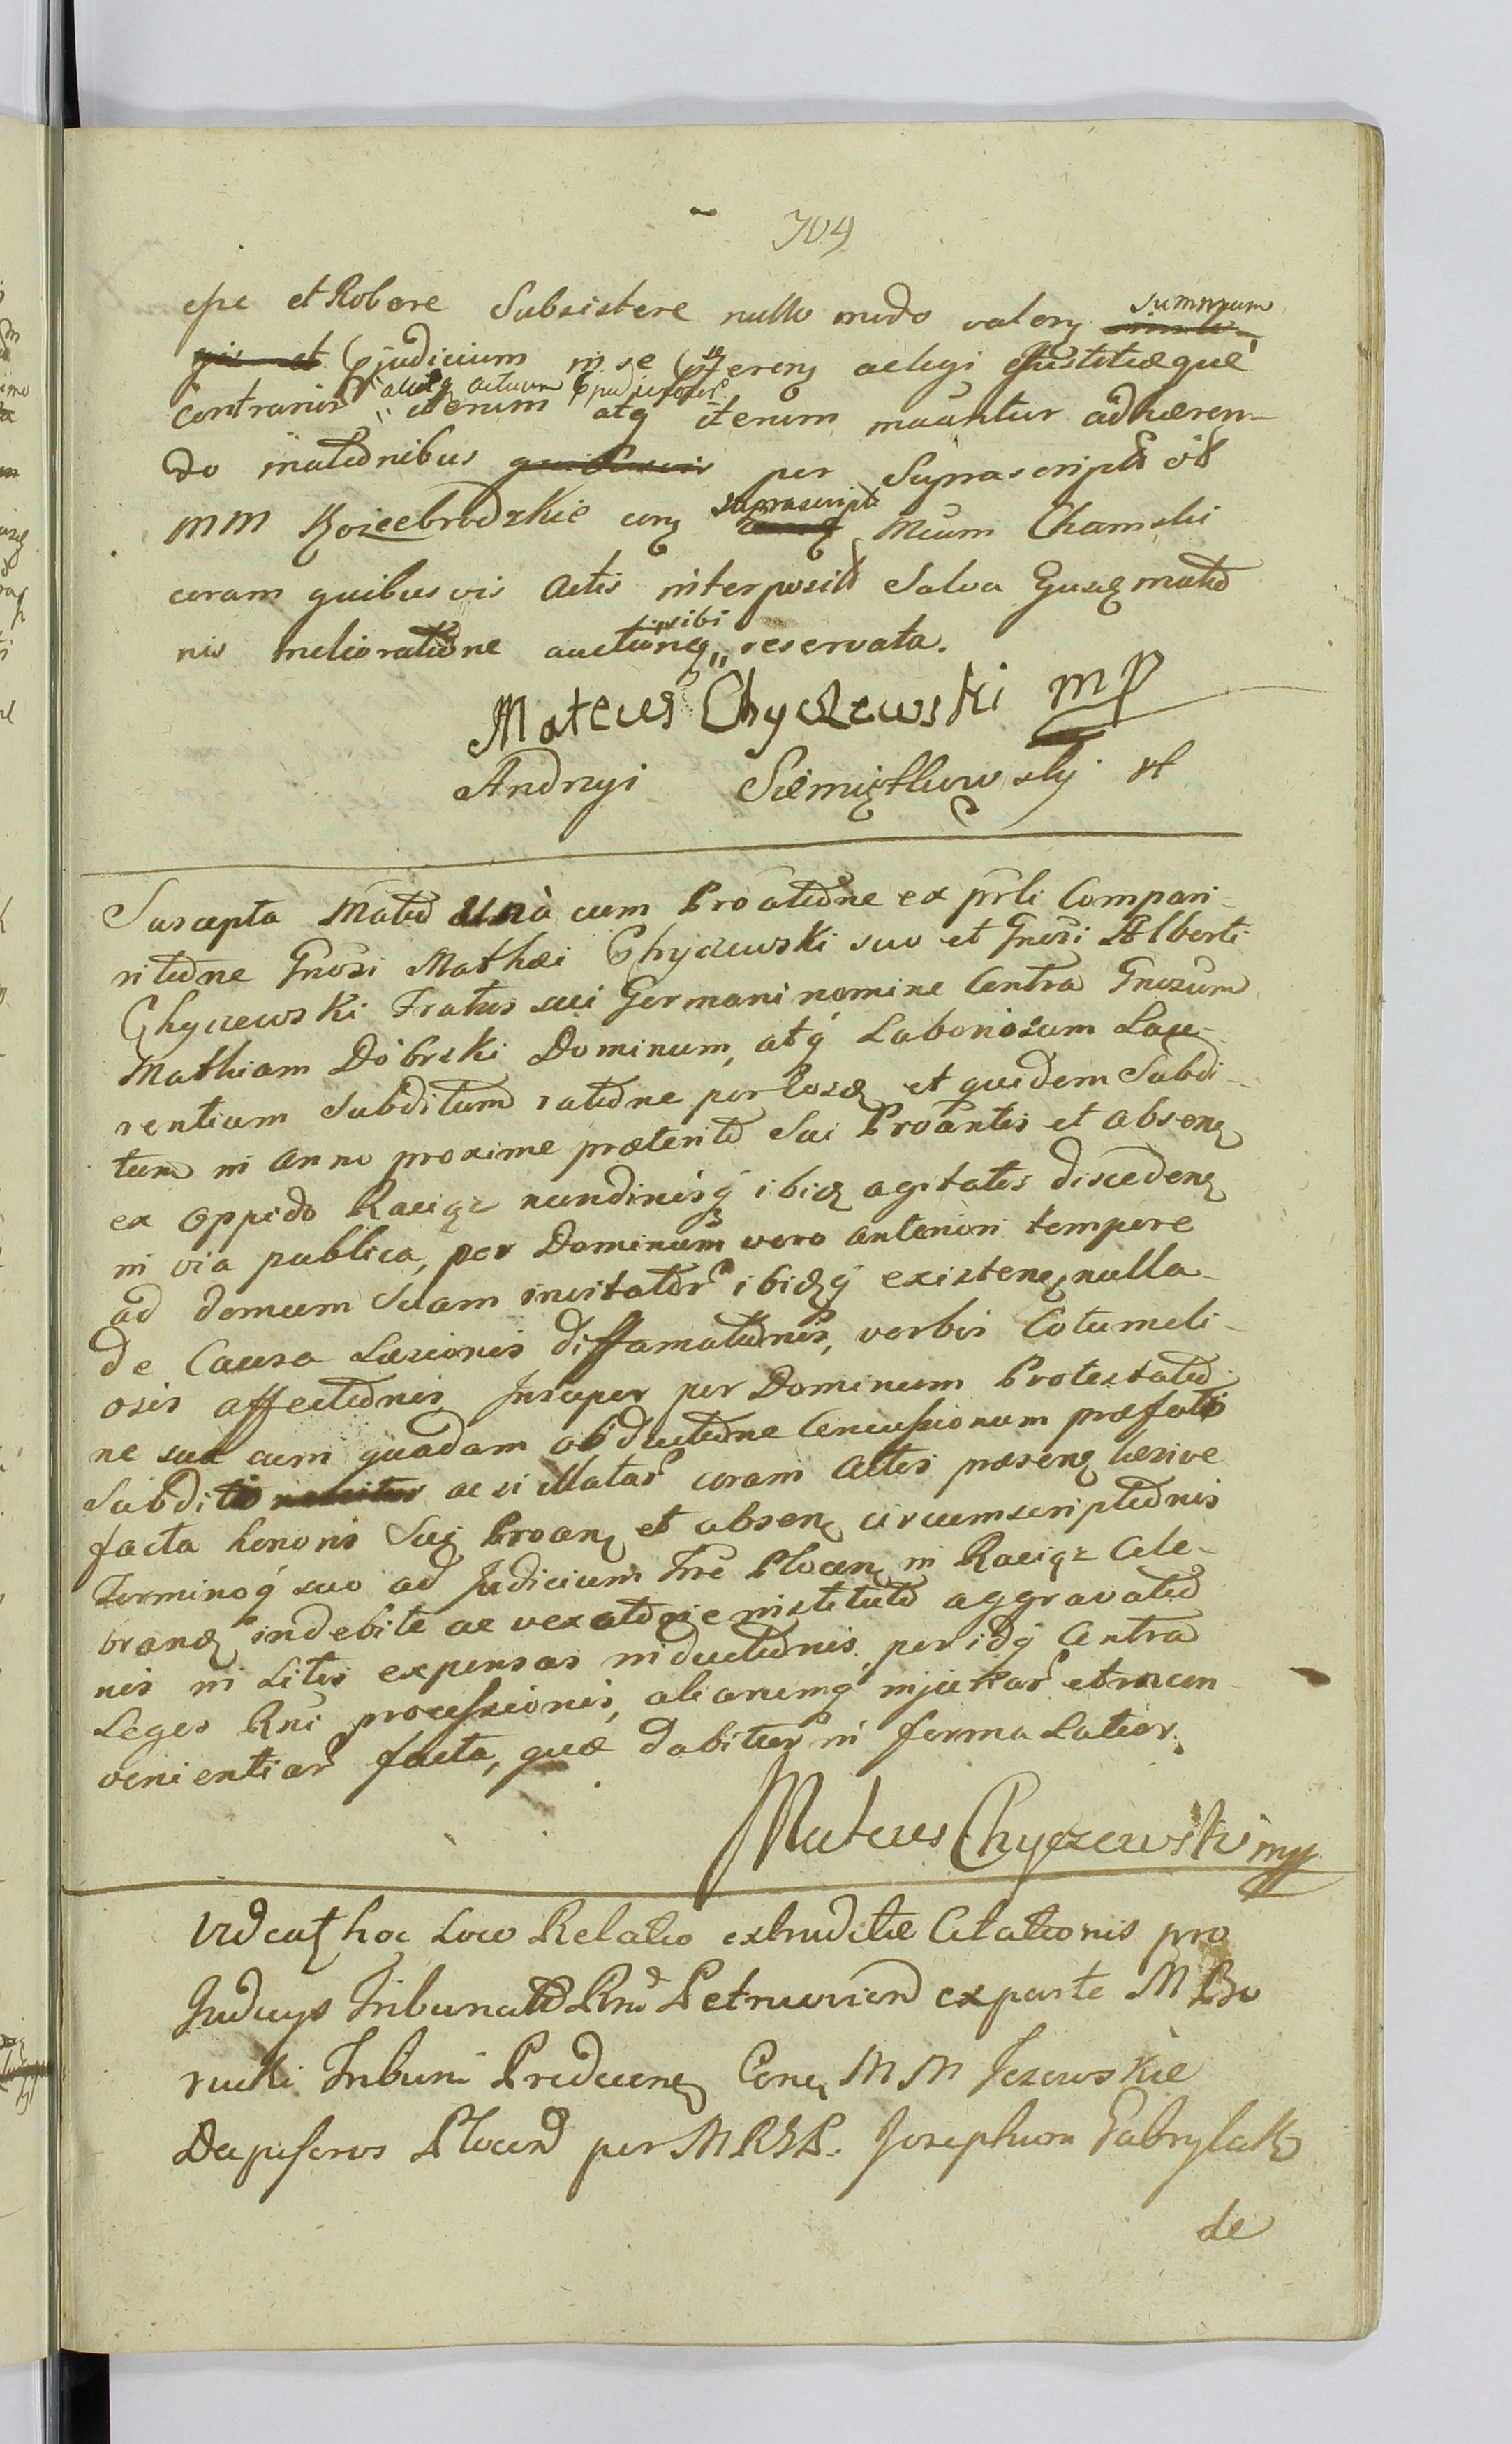 704
esse et Robore Subsistere nullo modo valenz summum
judicium in se ferenz ac legi Justitiæque
contrarior iterum atq iterum mãntur adhæren-
do mãtionibus per Suprascriptõ
MM Kozcebrodzkie conq suprascriptũ Mcum Chamski
coram quibusvis Actis interpositõ Salva Ejusq matio
nis melioratione auctioneq sibi reservata.
Mateus Chyczewski mp
Andrzyi Siemiątkowsky
Suscepta Matio Unà cum Proatione ex prli Compari-
ritione Gnosi Mathæi Chyczewski suo et Gnosi Alberti
Chyczewski Fratris sui Germani nomine Contra Gnosum
Mathiam Dobrski Dominum, atq Laboriosum Lau-
rentium Subditum ratione per Eosdq et quidem Subdi-
tum in Anno proxime præterito Sui Proantis et absenq
ex Oppido Raciąz nundinisq ibiq agitatis discedenq
in via publica, per Dominum vero anteriori tempore
ad domum Suam invitator ibidq existenq nulla
de Causa Læsionis diffamationis, verbis Cotumeli-
osis affectionis Insuper per Dominum Protestatio
ne sua cum quadam obductione Concussionum præfato
Subdito ac si illatar coram Actis præsenq læsive
facta honoris Sui Proanq et absenq circumscriptionis
Terminoq suo ad Judicium Tre Plocenq in Raciąz Cele-
brandq indebite ac vexatorie instituto aggravatio
nis in Litis expensas inductionis, per idq Contra
Leges Rni processionis, aliarumq injuriar et incon
venientiar facta, quæ dabitur in forma Latior.
Mateus Chyczewski mp
Vdcatq hoc Loco Relatio extraditæ Citationis pro
Judicys Tribunalõ Rni Petricovien ex parte M Bo
rucki Tribuni Bredecenq Conq MM Jezewskie
Dapiferos Plocen per MRGP. Josephum Gabrylak
de